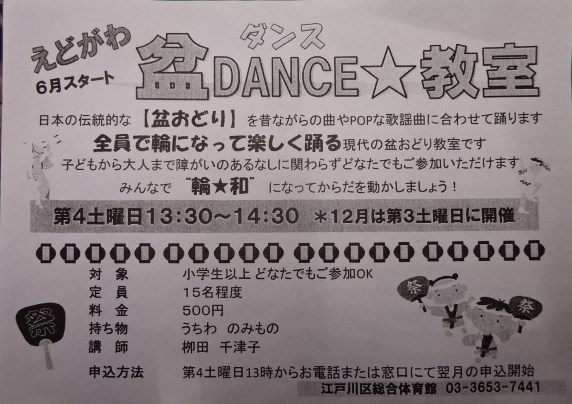 えどがわ
6月スタート
ダンス
盆DANCE★教室
日本の伝統的な【盆おどり】を昔ながらの曲やPOPな歌謡曲に合わせて踊ります
全員で輪になって楽しく踊る現代の盆おどり教室です
子どもから大人まで障がいのあるなしに関わらずどなたでもご参加いただけます
みんなで “輪★和” になってからだを動かしましょう！
第4土曜日13:30～14:30 ＊12月は第3土曜日に開催
対象 小学生以上 どなたでもご参加OK
定員 15名程度
料金 500円
持ち物 うちわ のみもの
講師 栁田 千津子
申込方法 第4土曜日13時からお電話または窓口にて翌月の申込開始
江戸川区総合体育館 03-3653-7441
祭
祭
祭